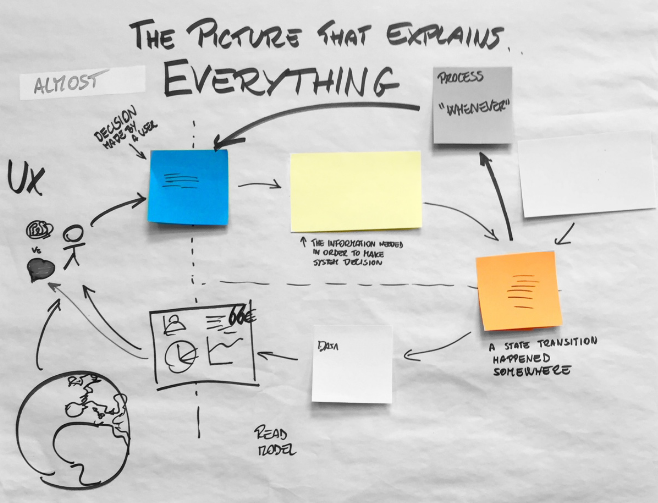 THE PICTURE THAT EXPLAINS...
ALMOST
EVERYTHING
PROCESS
"WHENEVER"
DECISION
MADE BY
A USER
UX
VS
THE INFORMATION NEEDED
IN ORDER TO MAKE
SYSTEM DECISION
66€
DATA
A STATE TRANSITION
HAPPENED
SOMEWHERE
READ
MODEL